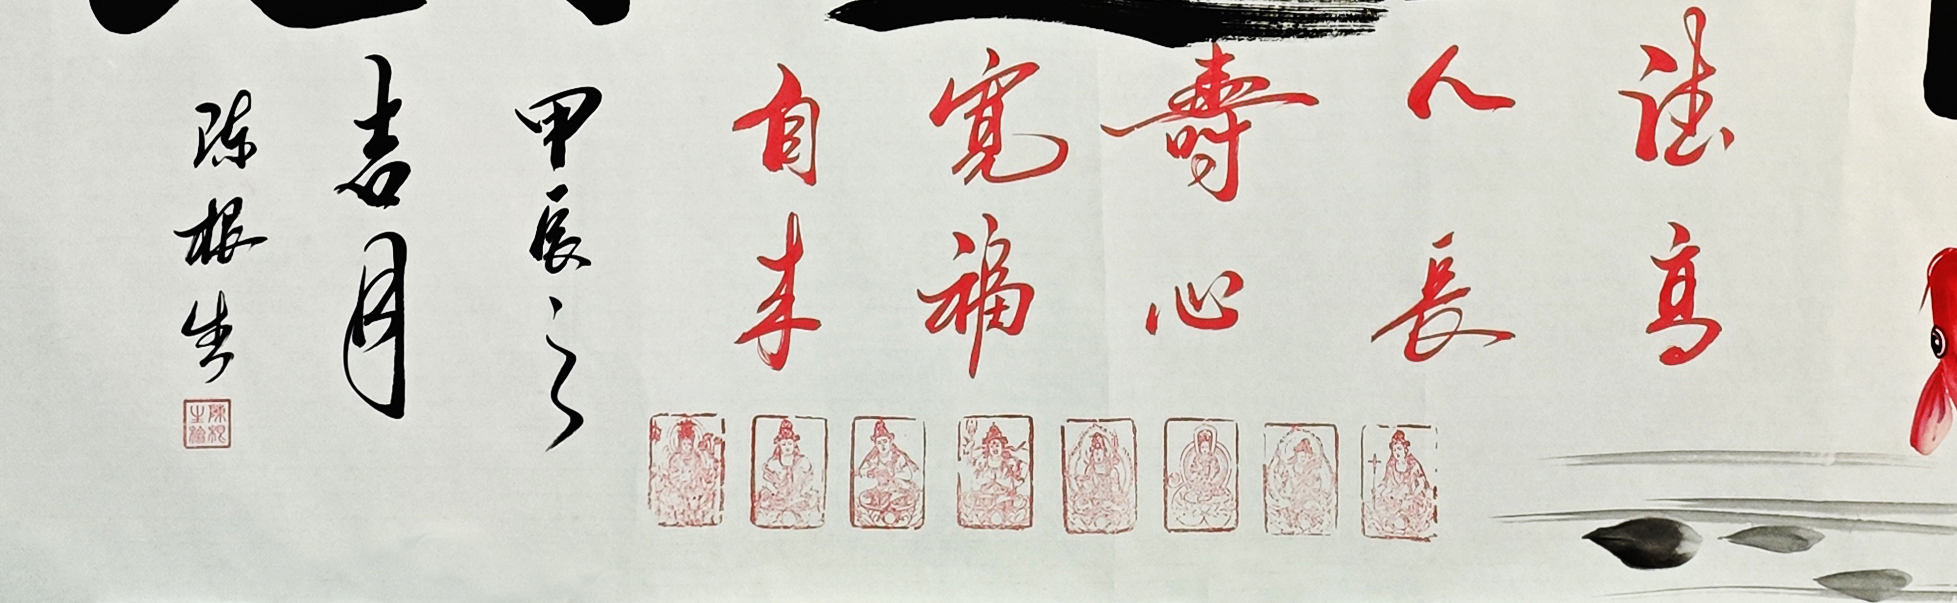 德高
人長
壽心
寬福
自来
甲辰之
吉月
陈根生
陳根生